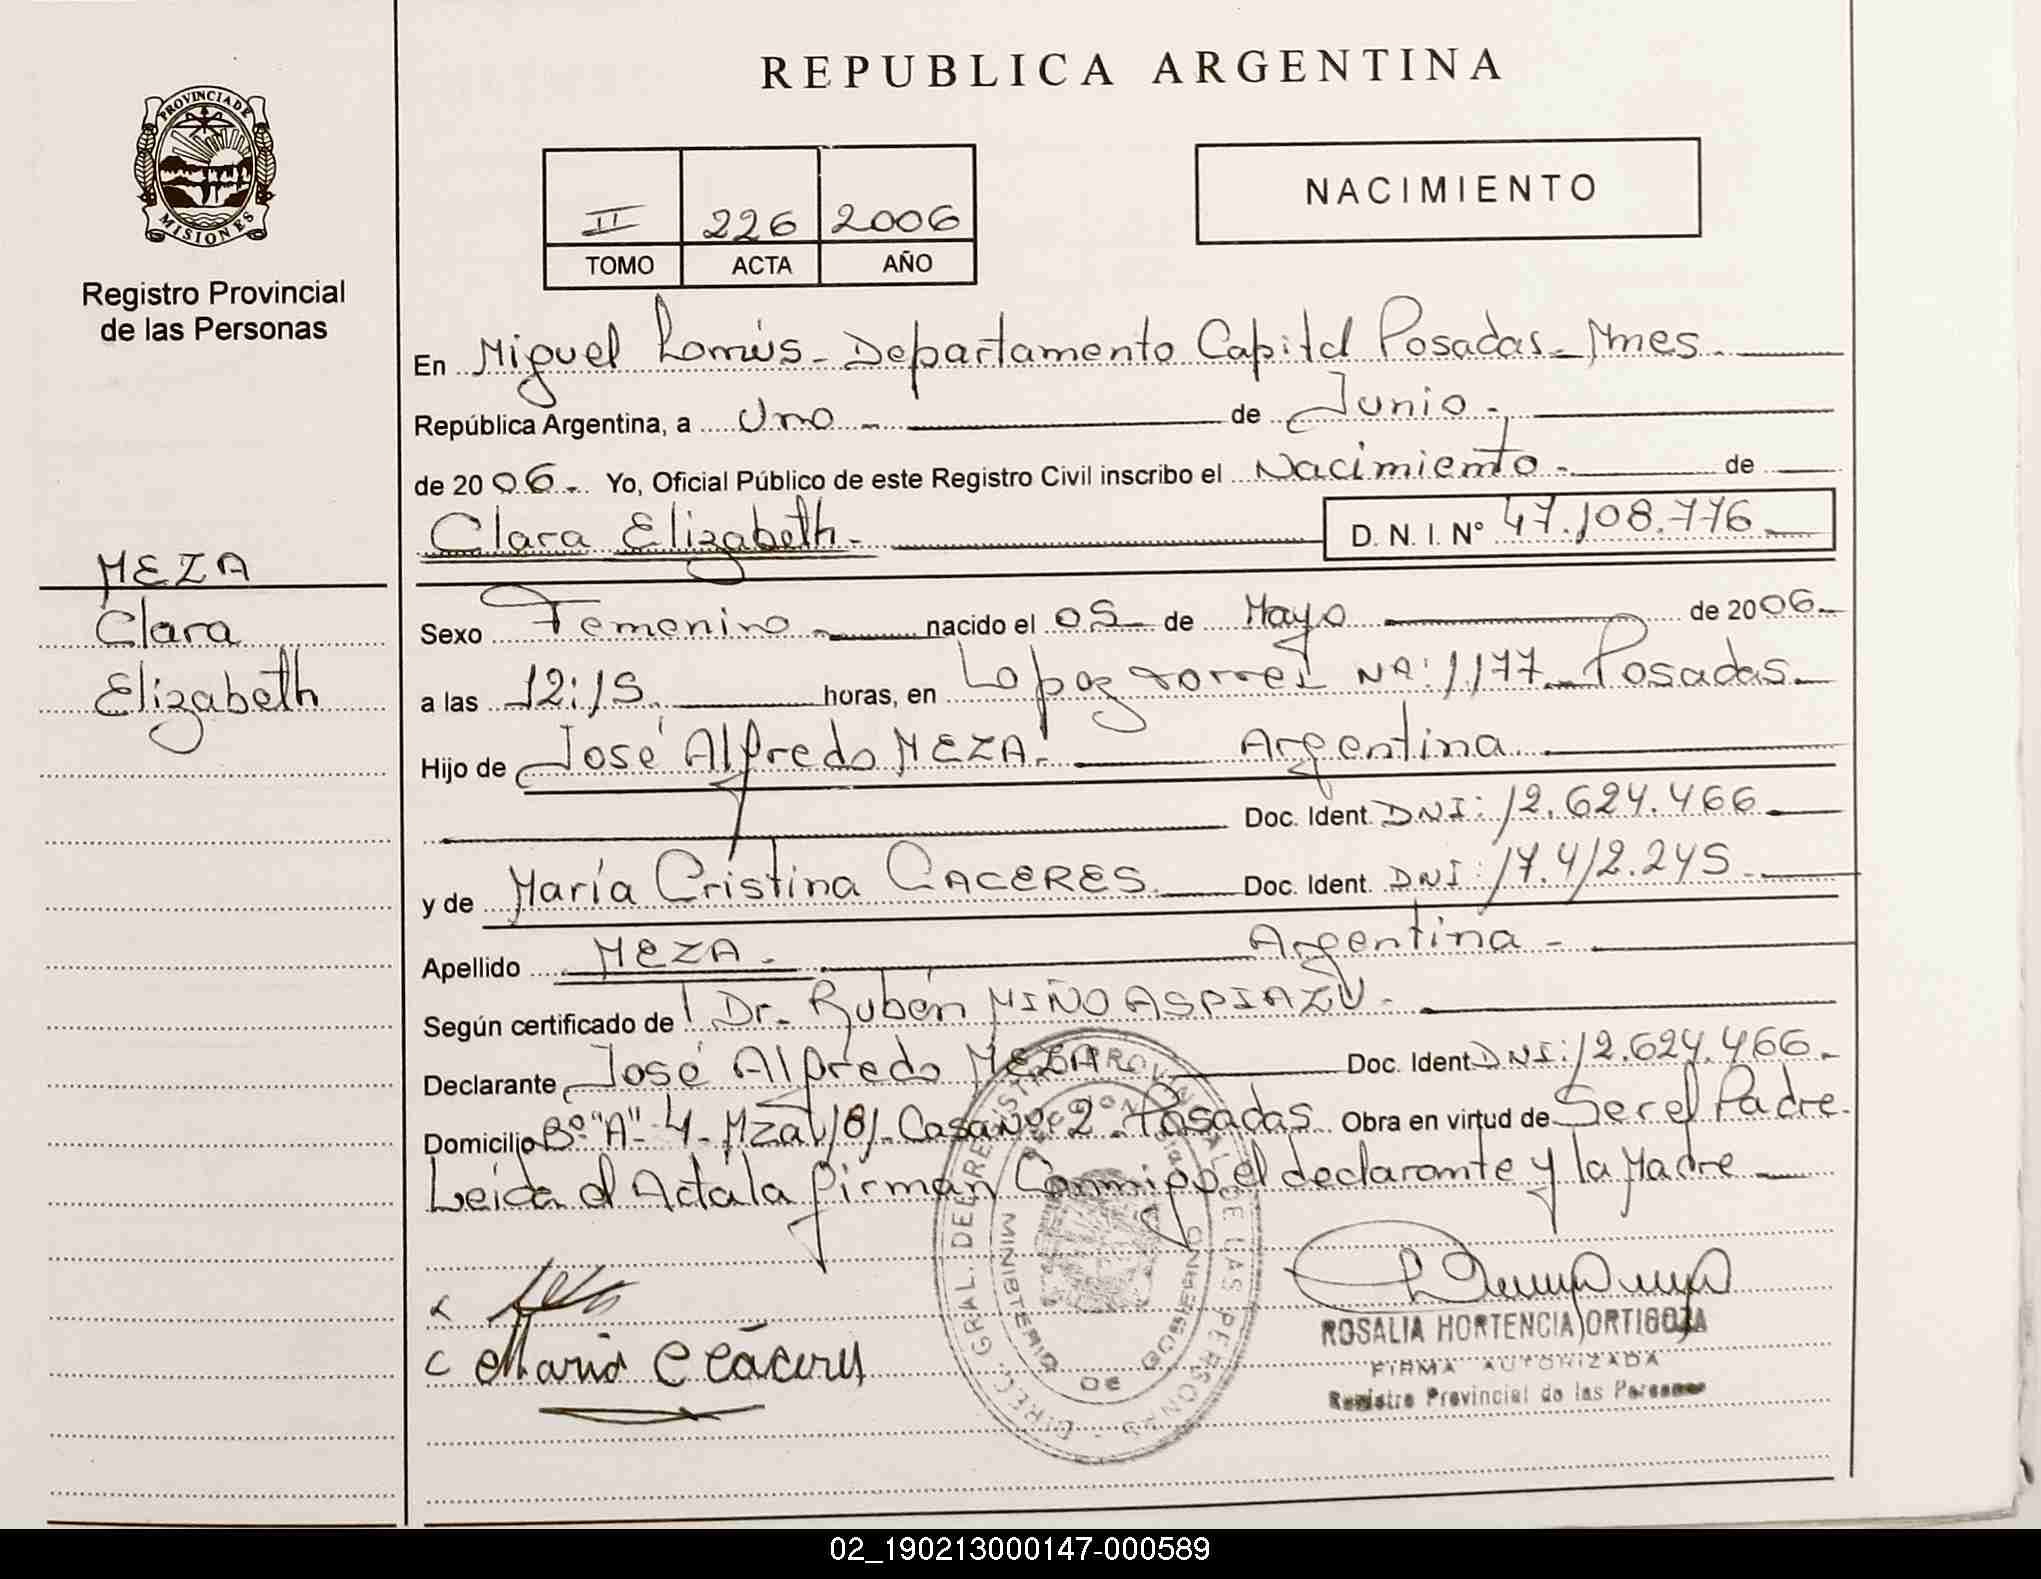 REPUBLICA ARGENTINA
PROVINCIA DE
MISIONES
Registro Provincial
de las Personas
II 226 2006
TOMO ACTA AÑO
NACIMIENTO
En Miguel Lanús - Departamento Capital Posadas - Mnes
República Argentina, a Uno - de Junio -
de 2006 - Yo, Oficial Público de este Registro Civil inscribo el Nacimiento - de
Clara Elizabeth - D. N. I. N° 47.108.776
MEZA
Clara
Elizabeth
Sexo Femenino nacido el 05 de Mayo de 2006 -
a las 12:15 horas, en Lopez Torres Nº: 1.177 - Posadas -
Hijo de José Alfredo MEZA - Argentina
Doc. Ident. DNI: 12.624.466
y de María Cristina CACERES Doc. Ident. DNI: 17.412.245
Apellido MEZA - Argentina -
Según certificado de Dr. Rubén MIÑO ASPIAZU -
Declarante José Alfredo MEZA Doc. Ident DNI: 12.624.466 -
Domicilio Bº "A" - 4 - Mza 181 - Casa Nº 2 - Posadas Obra en virtud de Ser el Padre -
Leida el Acta la firman Conmigo el declarante y la Madre
Maria C Cáceres
DIREC. GRAL. DEL REGISTRO PROVINCIAL DE LAS PERSONAS
MINISTERIO DE GOBIERNO
ROSALIA HORTENCIA ORTIGOZA
FIRMA AUTORIZADA
Registro Provincial de las Personas
02_190213000147-000589